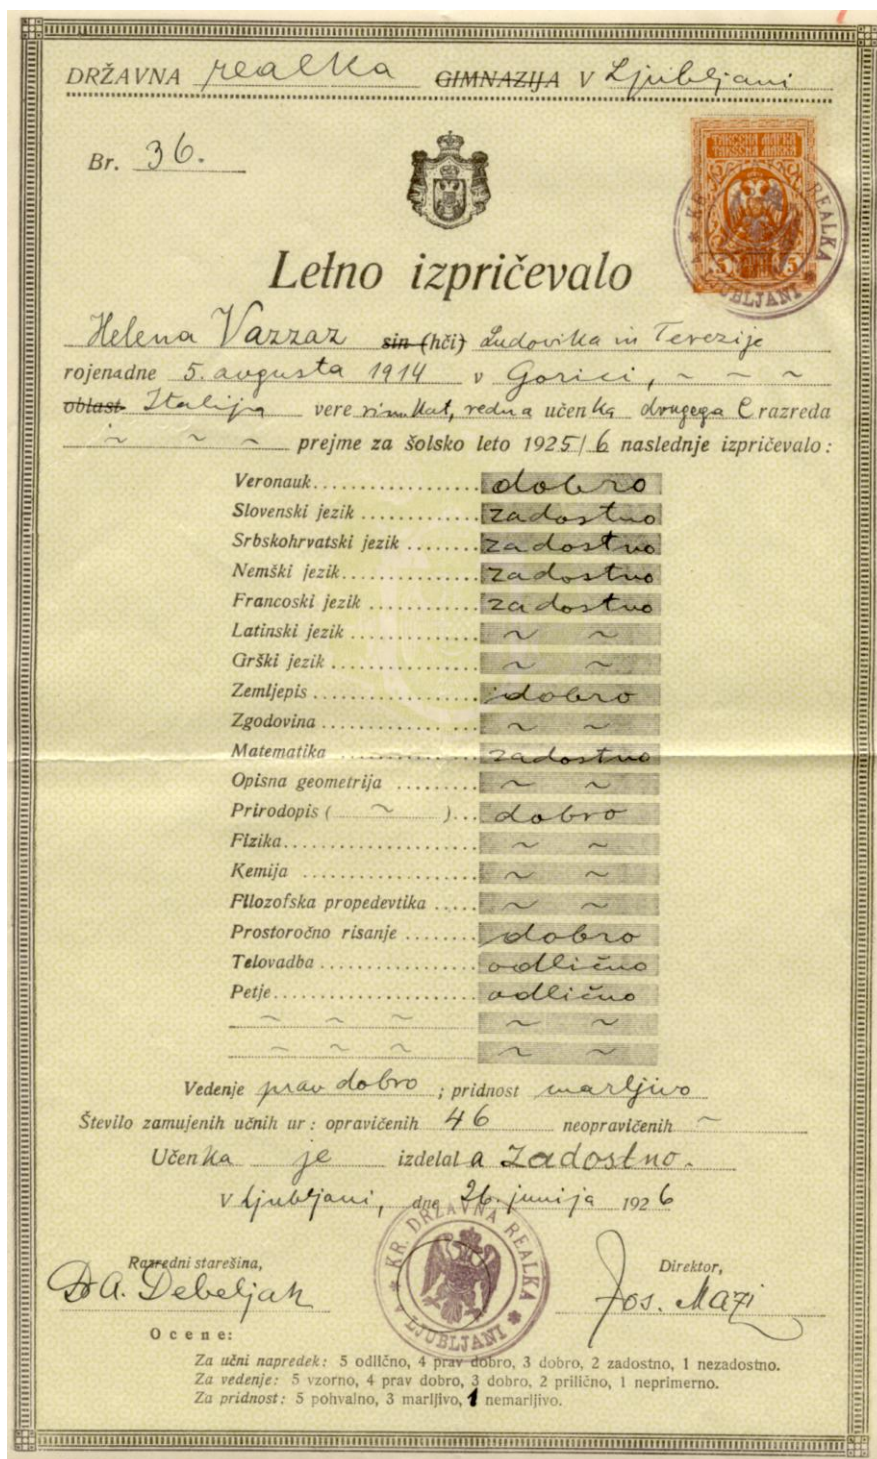 DRŽAVNA realka GIMNAZIJA V Ljubljani
Br. 36.
ТАКСЕНА МАРКА
TAKSENA MARKA
5 5
KR. DRŽAVNA REALKA * LJUBLJANI *
Letno izpričevalo
Helena Vazzaz sin (hči) Ludovika in Terezije
rojena dne 5. avgusta 1914 v Gorici, ~ ~ ~
oblast Italija vere rimkat, redna učenka drugega C razreda
~ ~ ~ prejme za šolsko leto 1925/6 naslednje izpričevalo:
Veronauk dobro
Slovenski jezik zadostno
Srbskohrvatski jezik zadostno
Nemški jezik zadostno
Francoski jezik zadostno
Latinski jezik ~ ~
Grški jezik ~ ~
Zemljepis dobro
Zgodovina ~ ~
Matematika zadostno
Opisna geometrija ~ ~
Prirodopis ( ~ ) dobro
Fizika ~ ~
Kemija ~ ~
Filozofska propedevtika ~ ~
Prostoročno risanje dobro
Telovadba odlično
Petje odlično
~ ~ ~ ~ ~
~ ~ ~ ~ ~
Vedenje prav dobro; pridnost marljivo
Število zamujenih učnih ur: opravičenih 46 neopravičenih ~
Učenka je izdelala zadostno.
V Ljubljani, dne 26. junija 1926
KR. DRŽAVNA REALKA * LJUBLJANI *
Razredni starešina, Direktor,
Dr A. Debeljak Jos. Mazi
Ocene:
Za učni napredek: 5 odlično, 4 prav dobro, 3 dobro, 2 zadostno, 1 nezadostno.
Za vedenje: 5 vzorno, 4 prav dobro, 3 dobro, 2 prilično, 1 neprimerno.
Za pridnost: 5 pohvalno, 3 marljivo, 1 nemarljivo.